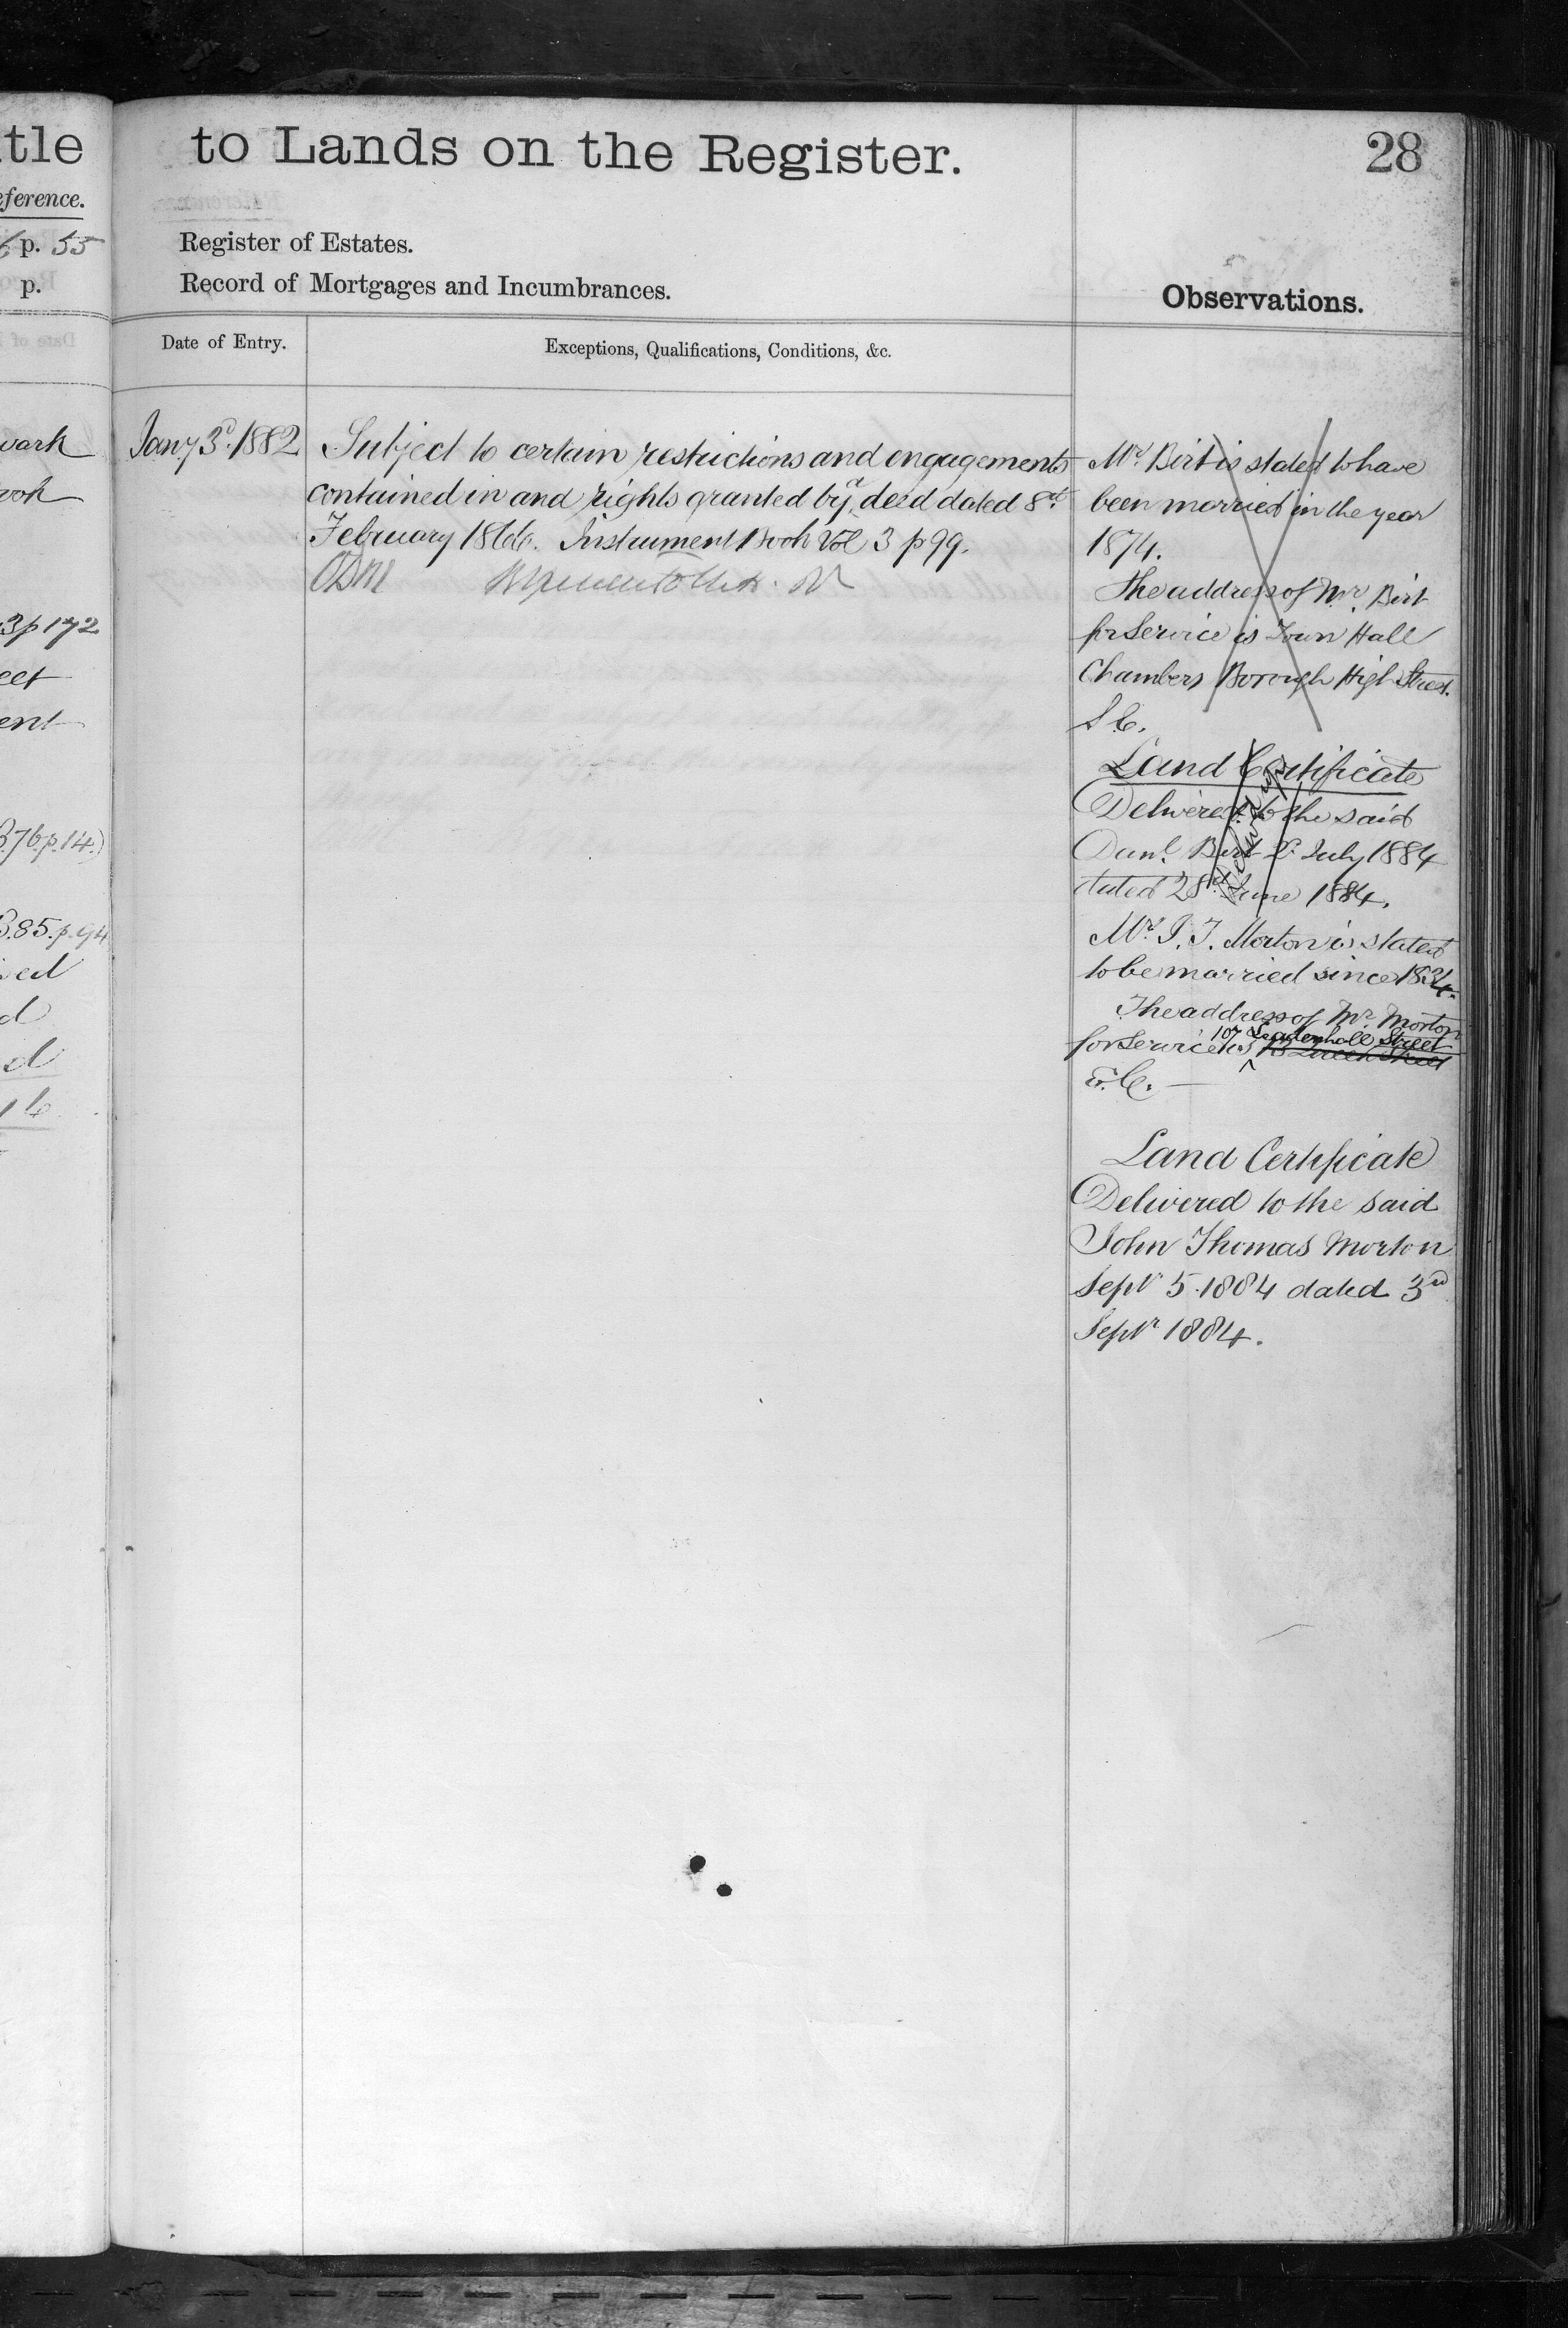 tle
eference.
p. 55
p.
vark
ook
3 p 172
eet
ent
B.76.p.14.)
B.85.p.94
ed
d
d
to Lands on the Register.
28
Register of Estates.
Record of Mortgages and Incumbrances.
Observations.
Date of Entry.
Exceptions, Qualifications, Conditions, &c.
Jany 3d. 1882
Subject to certain restrictions and engagements
contained in and rights granted by a deed dated 8th
February 1866. Instrument Book Vol 3 p 99.
Mr. Birt is stated to have
been married in the year
1874.
The address of Mr. Birt
for Service is Town Hall
Chambers Borough High Street.
S.E.
Land Certificate
Delivered to the said
Danl. Birt 2. July 1884
dated 28th June 1884.
Mr. J. T. Morton is stated
to be married since 1834.
The address of Mr. Morton
107 Leadenhall Street
for Service is Queen Street
E.C. —
Land Certificate
Delivered to the said
John Thomas Morton
Sepr 5. 1884 dated 3rd
Sepr 1884.